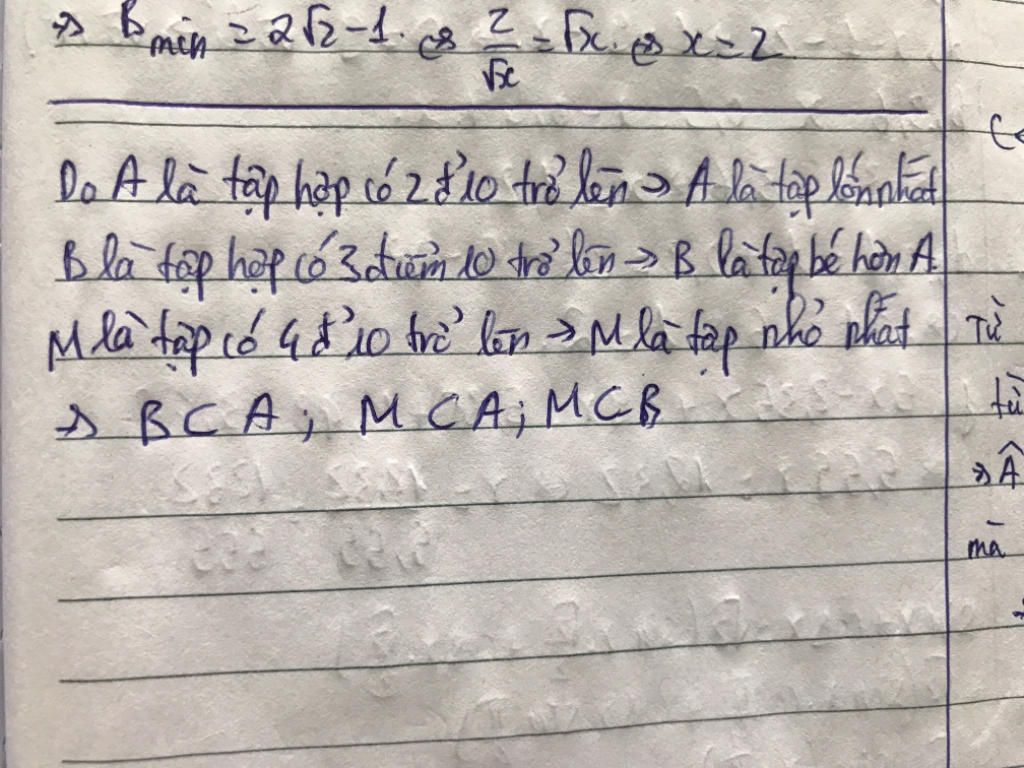 => B min = 2√2 - 1. <=> 2/√x = √x. <=> x = 2
Do A là tập hợp có 2 đ' 10 trở lên => A là tập lớn nhất
B là tập hợp có 3 điểm 10 trở lên -> B là tập bé hơn A.
M là tập có 4 đ' 10 trở lên -> M là tập nhỏ nhất
=> B ⊂ A ; M ⊂ A ; M ⊂ B
Từ
từ
=> Â
mà